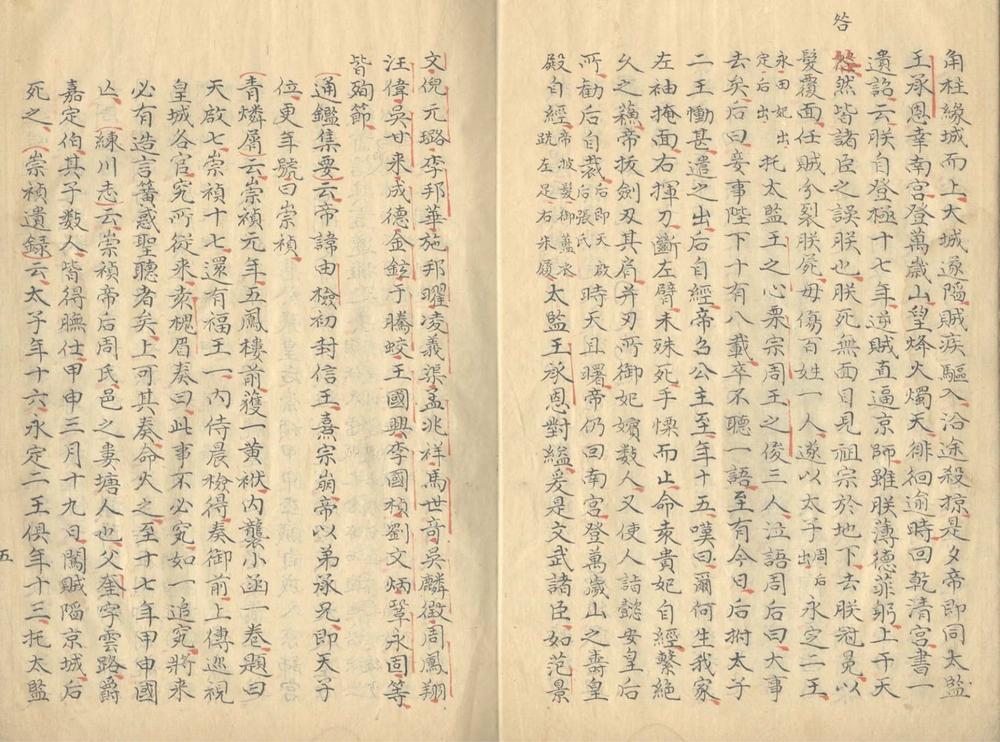 咎
角柱緣城而上大城遂陷賊疾驅入沿途殺掠是夕帝即同太監
王承恩幸南宮登萬歲山望烽火燭天徘徊逾時回乾清宮書一
遺詔云朕自登極十七年逆賊直逼京師雖朕薄德菲躬上干天
然皆諸臣之誤朕也朕死無面目見祖宗於地下去朕冠冕以
髮覆面任賊分裂朕屍毋傷百姓一人遂以太子周后出永定二王
永田妃出定后出托太監王之心栗宗周王之俊三人泣語周后曰大事
去矣后曰妾事陛下十有八載卒不聽一語至有今日后拊太子
二王慟甚遣之出后自經帝召公主至年十五嘆曰爾何生我家
左袖掩面右揮刀斷左臂未殊死手慄而止命袁貴妃自經繫絕
久之蘇帝拔劍刃其肩并刃所御妃嬪數人又使人詣懿安皇后
所勸后自裁后即天啟后張氏時天且曙帝仍回南宮登萬歲山之壽皇
殿自經帝披髮御藍衣跣左足右朱履太監王承恩對縊爰是文武諸臣如范景
文倪元璐李邦華施邦曜凌義渠孟兆祥馬世奇吳麟徵周鳳翔
汪偉吳甘來成德金鉉于騰蛟王國興李國楨劉文炳鞏永固等
皆殉節
通鑑集要云帝諱由檢初封信王熹宗崩帝以弟承兄即天子
位更年號曰崇禎
青燐屑云崇禎元年五鳳樓前獲一黃袱內襲小函一卷題曰
天啟七崇禎十七還有福王一內侍晨檢得奏御前上傳巡視
皇城各官究所從來袁槐眉奏曰此事不必究如一追究將來
必有造言簧惑聖聽者矣上可其奏命火之至十七年甲申國
亾練川志云崇禎帝后周氏邑之婁塘人也父奎字雲路爵
嘉定伯其子數人皆得膴仕甲申三月十九日闖賊陷京城后
死之崇禎遺錄云太子年十六永定二王俱年十三托太監
五